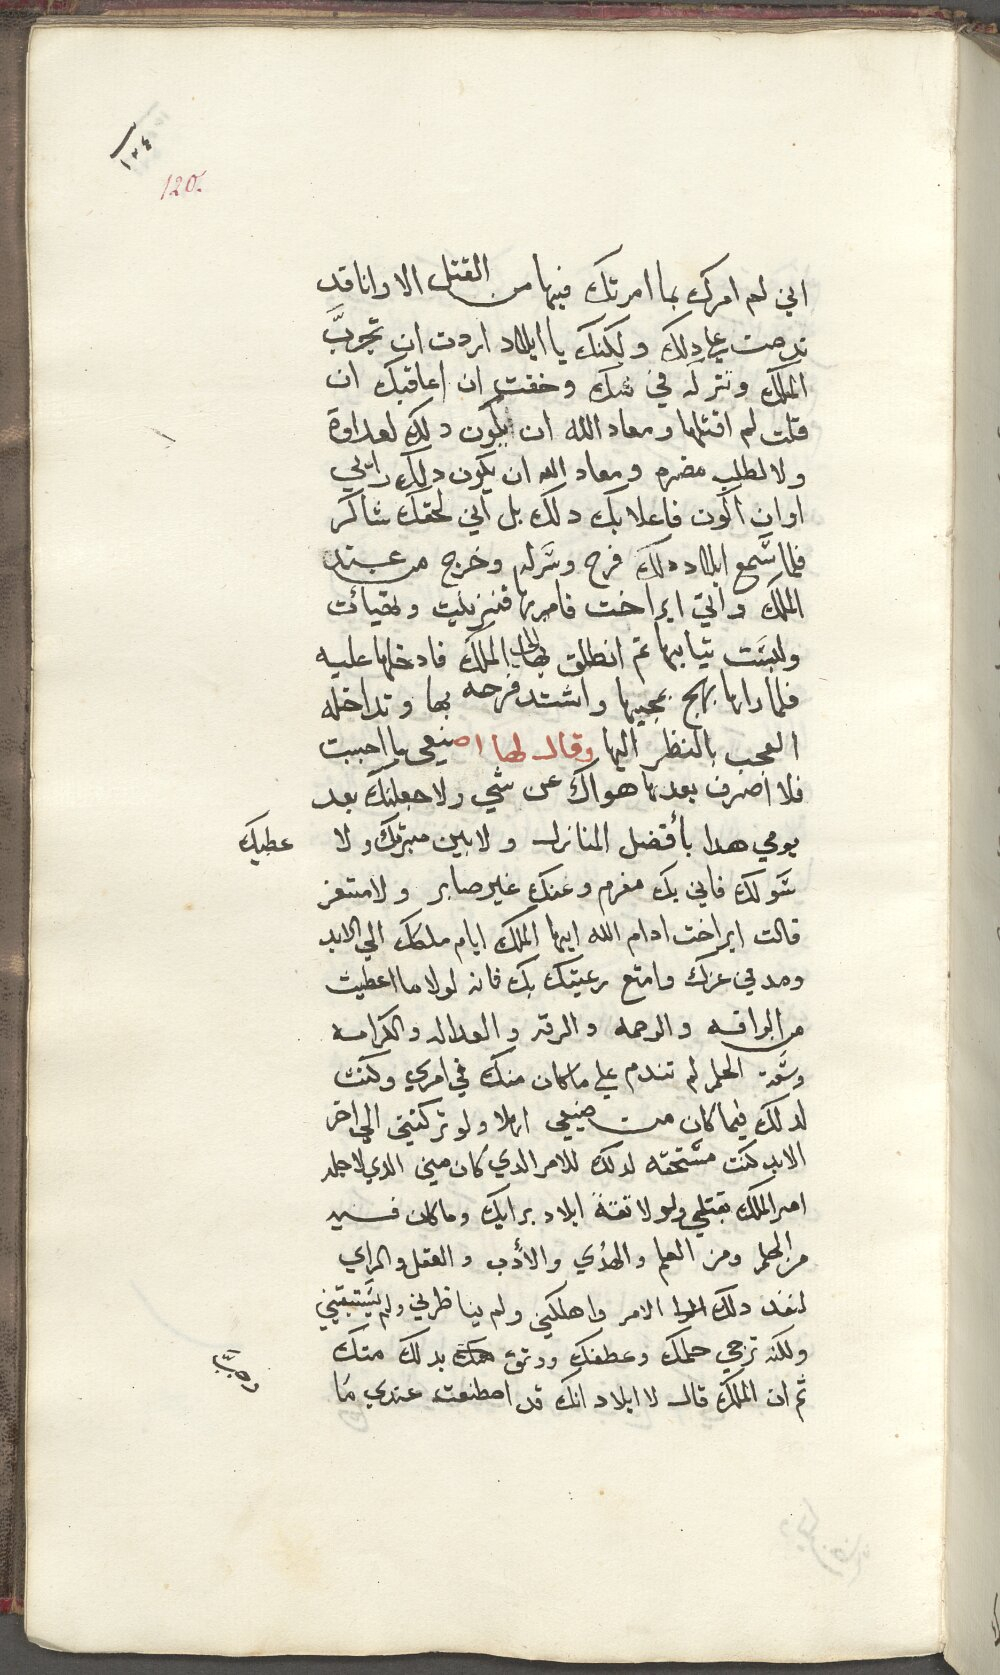 ١٢٤
120.
اني لم امرك بما امرتك فيها من القتل الا وانا قد
ندمت علي دلك ولكنك يا ايلاد اردت ان تجربَّ
الملك وتتركه في شك وخفت ان اعاقبك ان
قلت لم اقتلها ومعاد الله ان يكون دلك لعداوة
ولا لطلب مضره ومعاد الله ان يكون دلك رايي
او ان اكون فاعلا بك دلك بل اني لحقك شاكر
فلما سمع ايلاد دلك فرح وسَّر له وخرج من عند
الملك واتي ايراخت فامرها فتزينت وتهيأت
ولبسَت ثيابها ثم انطلق بها الى الملك فادخلها عليه
فلما راها بهج بمجيها واشتد فرحه بها وتداخله
العجب بالنظر اليها وقال لها اصنعي ما احببت
فلا اصرف بعدها هواك عن شي ولاجعلنك بعد
يومي هدا بأفضل المنازل ولابين مبرتك ولا عطيك
سَولك فاني بك مغرم وعنك غير صابر ولا متعز
قالت ايراخت ادام الله ايها الملك ايام ملكك الي الابد
ومد في عزك وامتع رعيتك بك فانه لولا ما اعطيت
من الرافه والرحمه والرقه والعداله والكرامه
وسَّعة الحلم لم تندم علي ما كان منك في امري وكنت
لدلك فيما كان من صنعي اهلا ولو تركتني الي اخر
الابد كنت مسَّتحقه لدلك للامر الدي كان مني الدي لاجله
امر الملك بقتلي ولولا ثقة ايلاد برايك وما كان فيه
من الحلم ومن العلم والهدُي والأدب والعقل والراي
لنفد دلك الامر واهلكني ولم يناظرني ولم يسَّتبقيني
ولكنه ترجي حلمك وعطفك ووثق بدلك منك
ثم ان الملك قال لايلاد انك قد اصطنعت عندي مَا